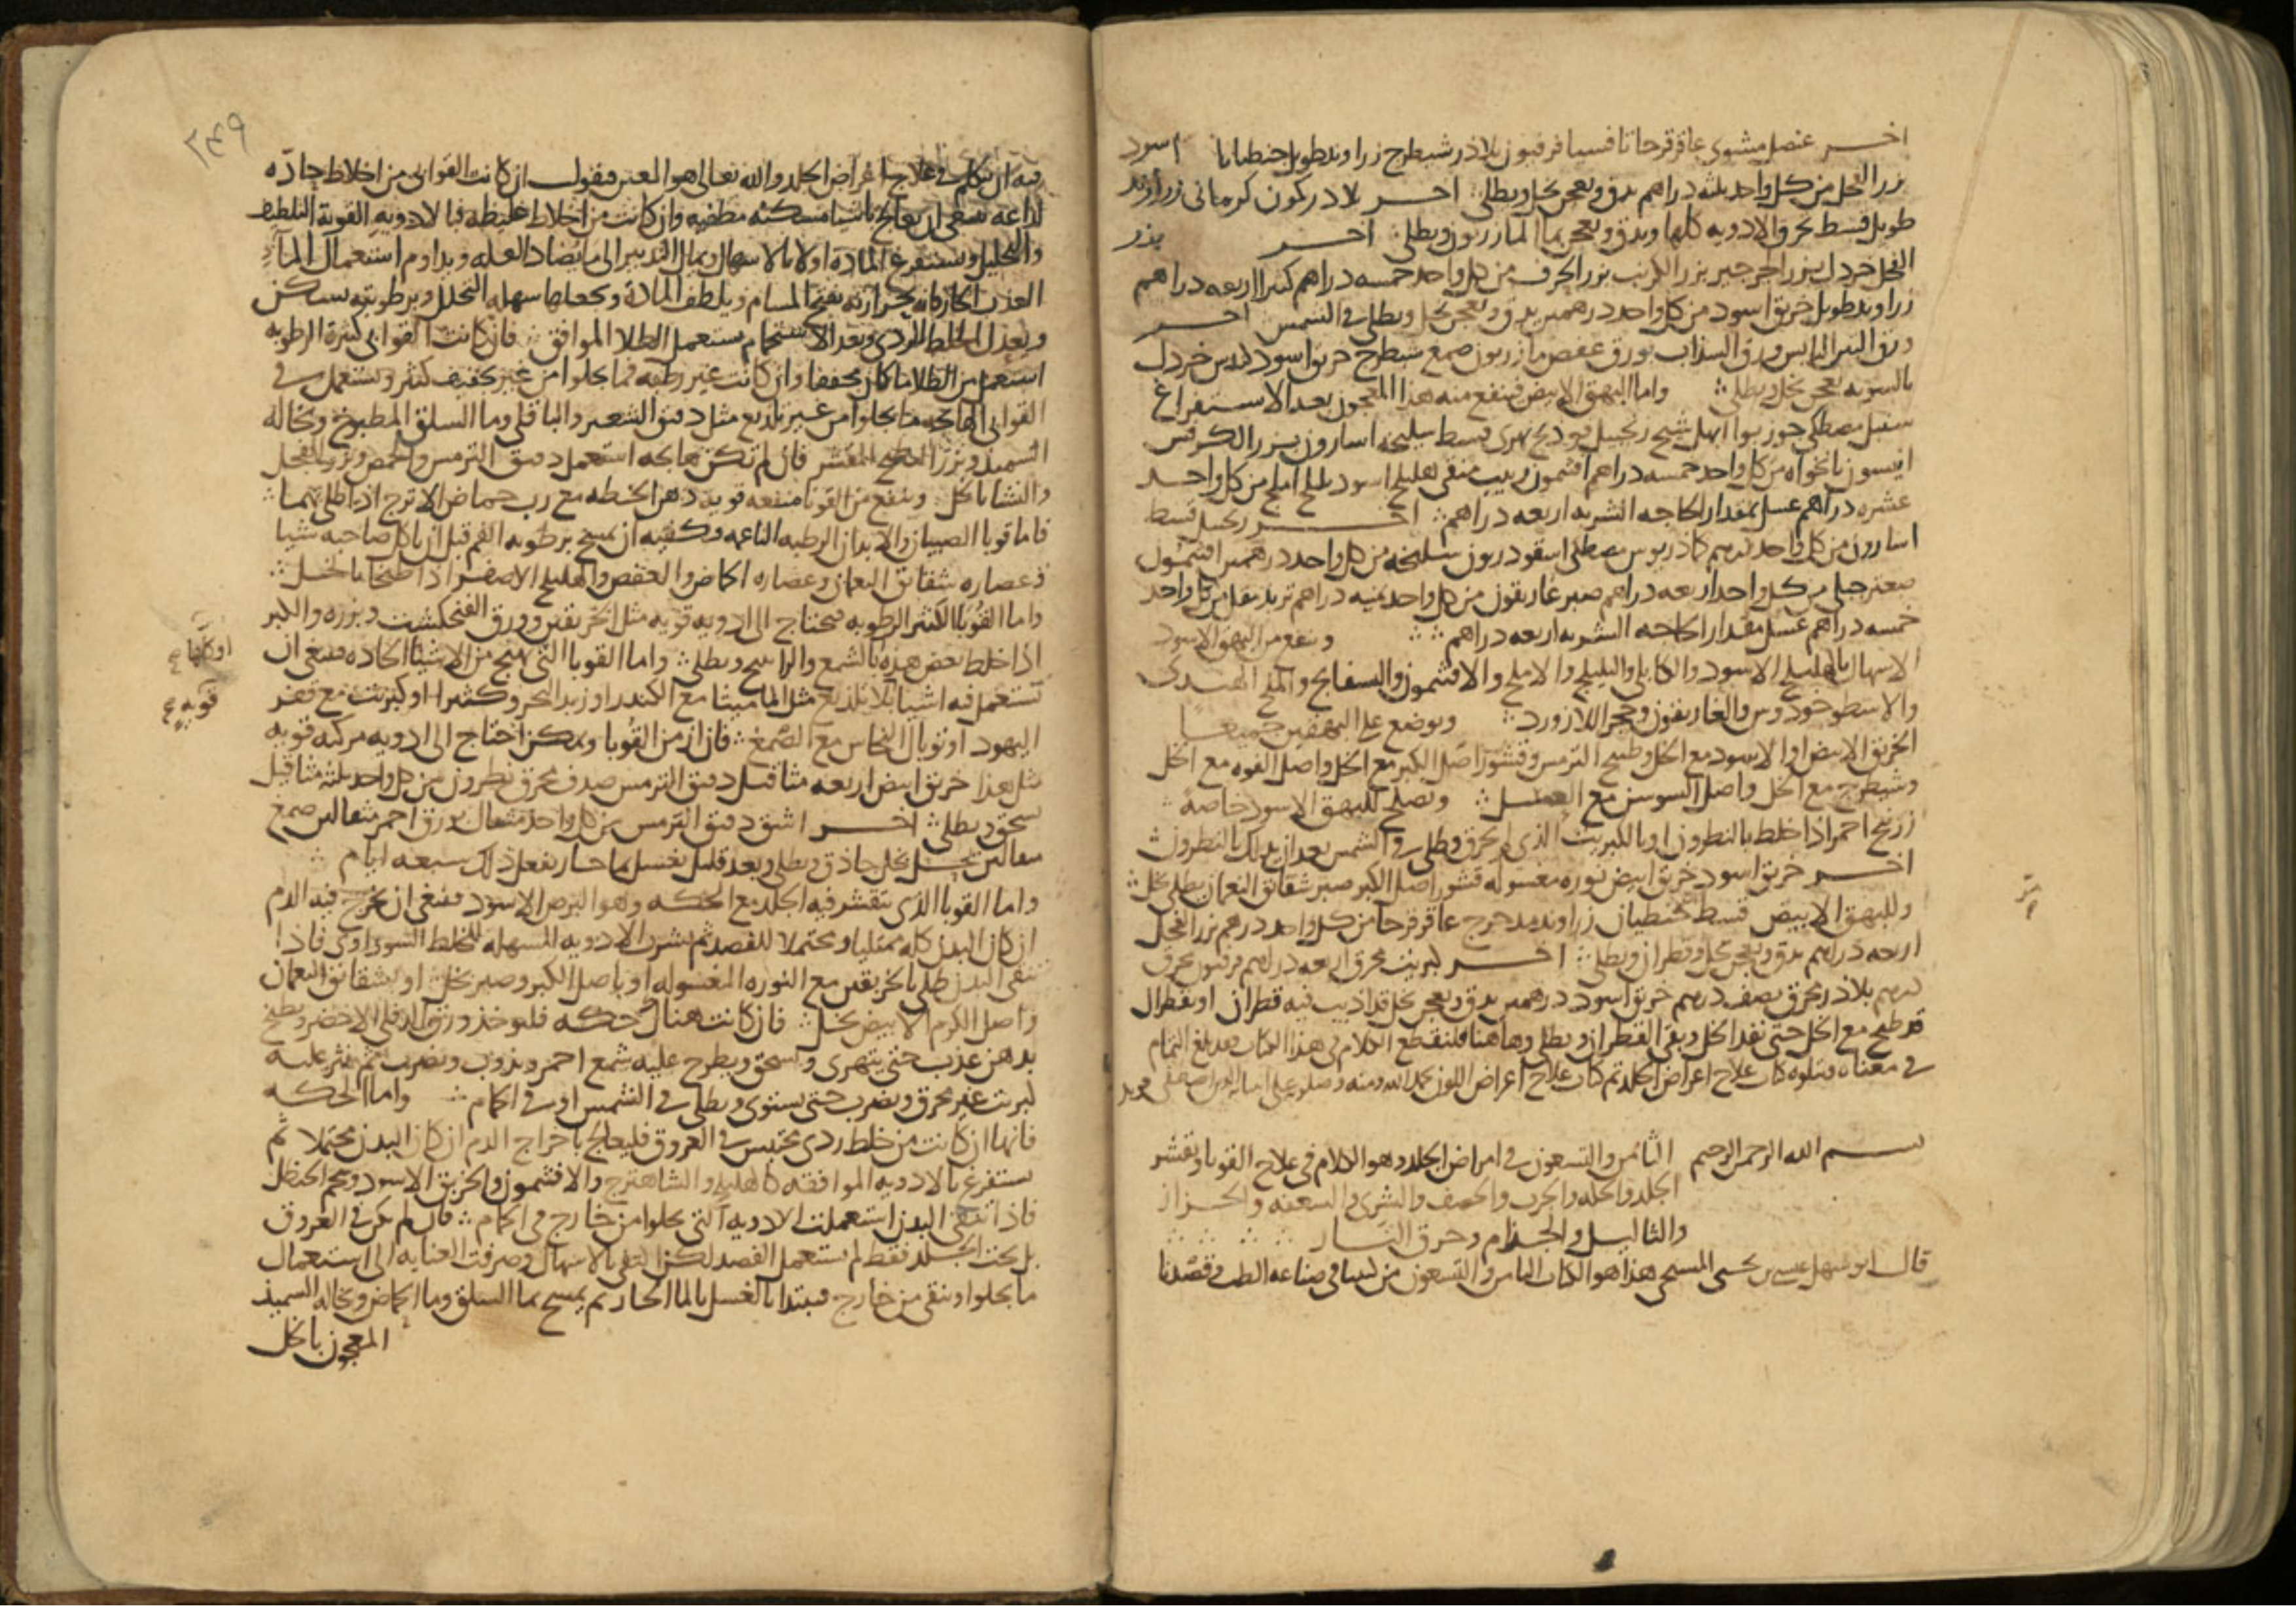 اخر عنصل مشوي عاقرقرحا تافسيا فرفيون بلاذر شيطرج زراوند طويل جنطيانا اسود
بزر الفجل من كل واحد ثلثه دراهم يدق ويعجن بخل ويطلى اخر بلادر كمون كرماني زراوند
طويل قسط يحرق الادويه كلها ويدق ويعجن بما المازريون ويطلى اخر بزر
الفجل خردل بزر الجرجير بزر الكرنب بزر الحرف من كل واحد خمسه دراهم كثيرا اربعه دراهم
زراوند طويل خربق اسود من كل واحد درهمين يدق ويعجن بخل ويطلى في الشمس اخر
ورق التين اليابس ورق السذاب بورق عفص مازريون صمغ شيطرج خربق اسود خردل
بالسويه يعجن بخل ويطلى واما البهق الابيض فينفع منه هذا المعجون بعد الاستفراغ
سنبل مصطكي جوزبوا ابهل شيح زنجبيل فودنج نهري قسط سليخه اسارون بزر الكرفس
انيسون نانخواه من كل واحد خمسه دراهم افتيمون زبيب منقى هليلج اسود بليلج املج من كل واحد
عشره دراهم عسل بمقدار الحاجه الشربه اربعه دراهم اخر زنجبيل قسط
اسارون من كل واحد درهم كماذريوس مصطكي اسقورديون سليخه من كل واحد درهمين افتيمون
صعتر جبلي من كل واحد اربعه دراهم صبر غاريقون من كل واحد ثمنيه دراهم تربد مقل من كل واحد
خمسه دراهم عسل مقدار الحاجه الشربه اربعه دراهم وينفع من البهق الاسود
الاسهال بالهليلج الاسود والكابلي والبليلج والاملج والافتيمون والبسفايج والملح الهندي
والاسطوخودوس والغاريقون وحجر اللازورد ويوضع على البهقين جميعا
الخربق الابيض او الاسود مع الخل وطبيخ الترمس وقشور اصل الكبر مع الخل واصل الفوه مع الخل
وشيطرج مع الخل واصل السوسن مع العسل ويصلح للبهق الاسود خاصة
زرنيخ احمر اذا خلط بالنطرون او بالكبريت الذي لم يحرق وطلي في الشمس بعد ان يدلك بالنطرون
اخر خربق اسود خربق ابيض نوره مغسوله قشور اصل الكبر صبر شقائق النعمان يطلى بخل
وللبهق الابيض قسط جنطيان زراوند مدحرج عاقرقرحا من كل واحد درهم بزر الفجل
اربعه دراهم يدق ويعجن بخل وقطران ويطلى اخر كبريت محرق اربعه دراهم فرفيون محرق
درهم بلاذر محرق نصف درهم خربق اسود درهمين يدق ويعجن بخل قد اذيب فيه قطران او بقطران
قد طبخ مع الخل حتى نفد الخل وبقي القطران ويطلى وهاهنا فلنقطع الكلام في هذا الكتاب فقد بلغ التمام
في معناه ويتلوه كتاب علاج اعراض الجلد تم كتاب علاج اعراض اللون بحمد الله ومنه
بسم الله الرحمن الرحيم الثامن والتسعون في امراض الجلد وهو الكلام في علاج القوبا وتقشر
الجلد والحكه والجرب والحصف والشرى والسعفه والحزاز
والثاليل والجذام وحرق النار
قال ابو سهل عيسى بن يحيى المسيحي هذا هو الكتاب الثامن والتسعون من كتبنا في صناعه الطب وقصدنا
٢٤٩
فيه ان نتكلم في علاج اعراض الجلد والله تعالى هو المعين فنقول ان كانت القوابي من اخلاط حادّه
لذاعه فينبغي ان يعالج باشيا مسكنه مطفيه وان كانت من اخلاط غليظه فبالادويه القوية التلطيف
والتحليل ويستفرغ المادة اولا بالاسهال ويمال التدبير الى ما يضاد العله ويداوم استعمال المآء
العذب الحار فانه بحرارته يفتح المسام ويلطف المادة ويجعلها سهله التحلل وبرطوبته يسكن
ويعدل الخلط الردي وبعد الاستحمام يستعمل الطلا الموافق فان كانت القوابي كثيرة الرطوبه
استعمل من الطلا ما كان مجففا وان كانت غير رطبه فما يجلوا من غير تجفيف كثير ويستعمل في
القوابي الهائجه ما يجلوا من غير تلذيع مثل دقيق الشعير والباقلي وما السلق المطبوخ ونخاله
السميذ وبزر البطيخ المقشر فان لم تكن هائجه استعمل دقيق الترمس والحمص وبزر الفجل
والنشا بالخل وينفع من القوبا منفعه قويه دهن الحنطه مع رب حماض الاترج اذا طلي بهما
فاما قوبا الصبيان والابدان الرطبه الناعمه فيكفيه ان يمسح برطوبه الفم قبل ان ياكل صاحبه شيا
وعصاره شقائق النعمان وعصاره الحماض والعفص والهليلج الاصفر اذا طبخا بالخل
واما القوبا الكثير الرطوبه فيحتاج الى ادويه قويه مثل الخربقين وورق الفنجنكشت وبزره والكبر
اذا خلط بعض هذه بالشمع والراتينج ويطلى واما القوبا التي تهيج من الاشيا الحاده فينبغي ان
تستعمل فيه اشيا بلا تلذيع مثل الماميثا مع الكندر او زبد البحر وكثيرا او كبريت مع قفر
اليهود او توبال النحاس مع الصّمغ فان ازمن القوبا وتمكن احتاج الى ادويه مركبه قويه
مثل هذا خربق ابيض اربعه مثاقيل دقيق الترمس صدف محرق نطرون من كل واحد ثلثه مثاقيل
يسحق ويطلى اخر اشق دقيق الترمس من كل واحد مثقال بورق احمر مثقالين صمغ
مثقالين يحل بخل حاذق ويطلى وبعد قليل يغسل بما حار يفعل ذلك سبعه ايام
واما القوبا الذي يتقشر فيه الجلد مع الحكه وهو البرص الاسود فينبغي ان يخرج فيه الدم
ان كان البدن كله ممتليا ومحتملا للفصد ثم يشرب الادويه المسهله للخلط السوداوي فاذا
تنقى البدن طلي بالخربقين مع النوره المغسوله او باصل الكبر وصبر بخل او بشقائق النعمان
واصل الكرم الابيض بخل فان كانت هناك حكه فليوخذ ورق الدفلى الاخضر ويطبخ
بدهن عذب حتى يتهرى ويسحق ويطرح عليه شمع احمر ويذوب ويضرب ثم ينثر عليه
كبريت غير محرق ويضرب حتى يستوي ويطلى في الشمس او في الحمام واما الحكه
فانها ان كانت من خلط ردي محتبس في العروق فليعالج باخراج الدم ان كان البدن محتملا ثم
يستفرغ بالادويه الموافقه كالهليلج والشاهترج والافتيمون والخربق الاسود وشحم الحنظل
فاذا تنقى البدن استعملت الادويه التي تجلوا من خارج في الحمام فان لم يكن في العروق
بل تحت الجلد فقط لم يستعمل الفصد لكن اكتفي بالاسهال وصرفت العنايه الى استعمال
ما يجلوا وينقي من خارج فيبتدا بالغسل بالما الحار ثم يمسح بما السلق وما الحماض ونخاله السميذ
المعجون بالخل